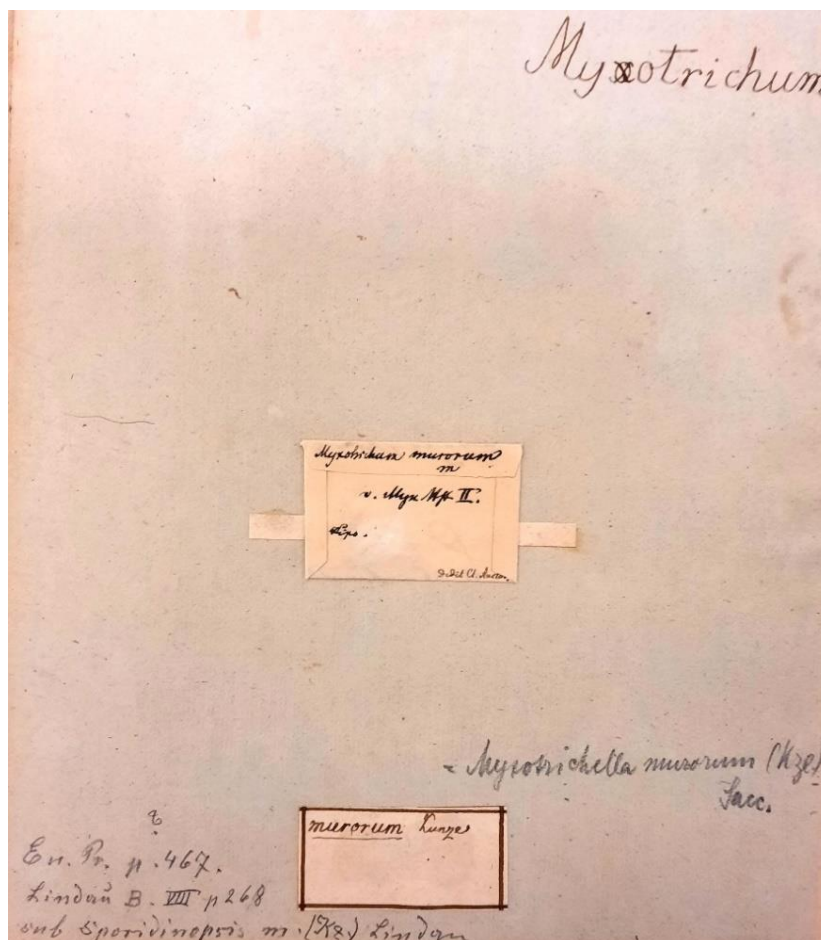 Myxotrichum
Myxotrichum murorum
m
v. Myc Hft II.
Lips.
Dedit Cl. Auctor.
= Myxotrichella murorum (Kze)
Sacc.
murorum Kunze
?
En. Pr. p. 467.
Lindau B. VIII p 268
sub Sporidinopsis m. (Kz.) Lindau